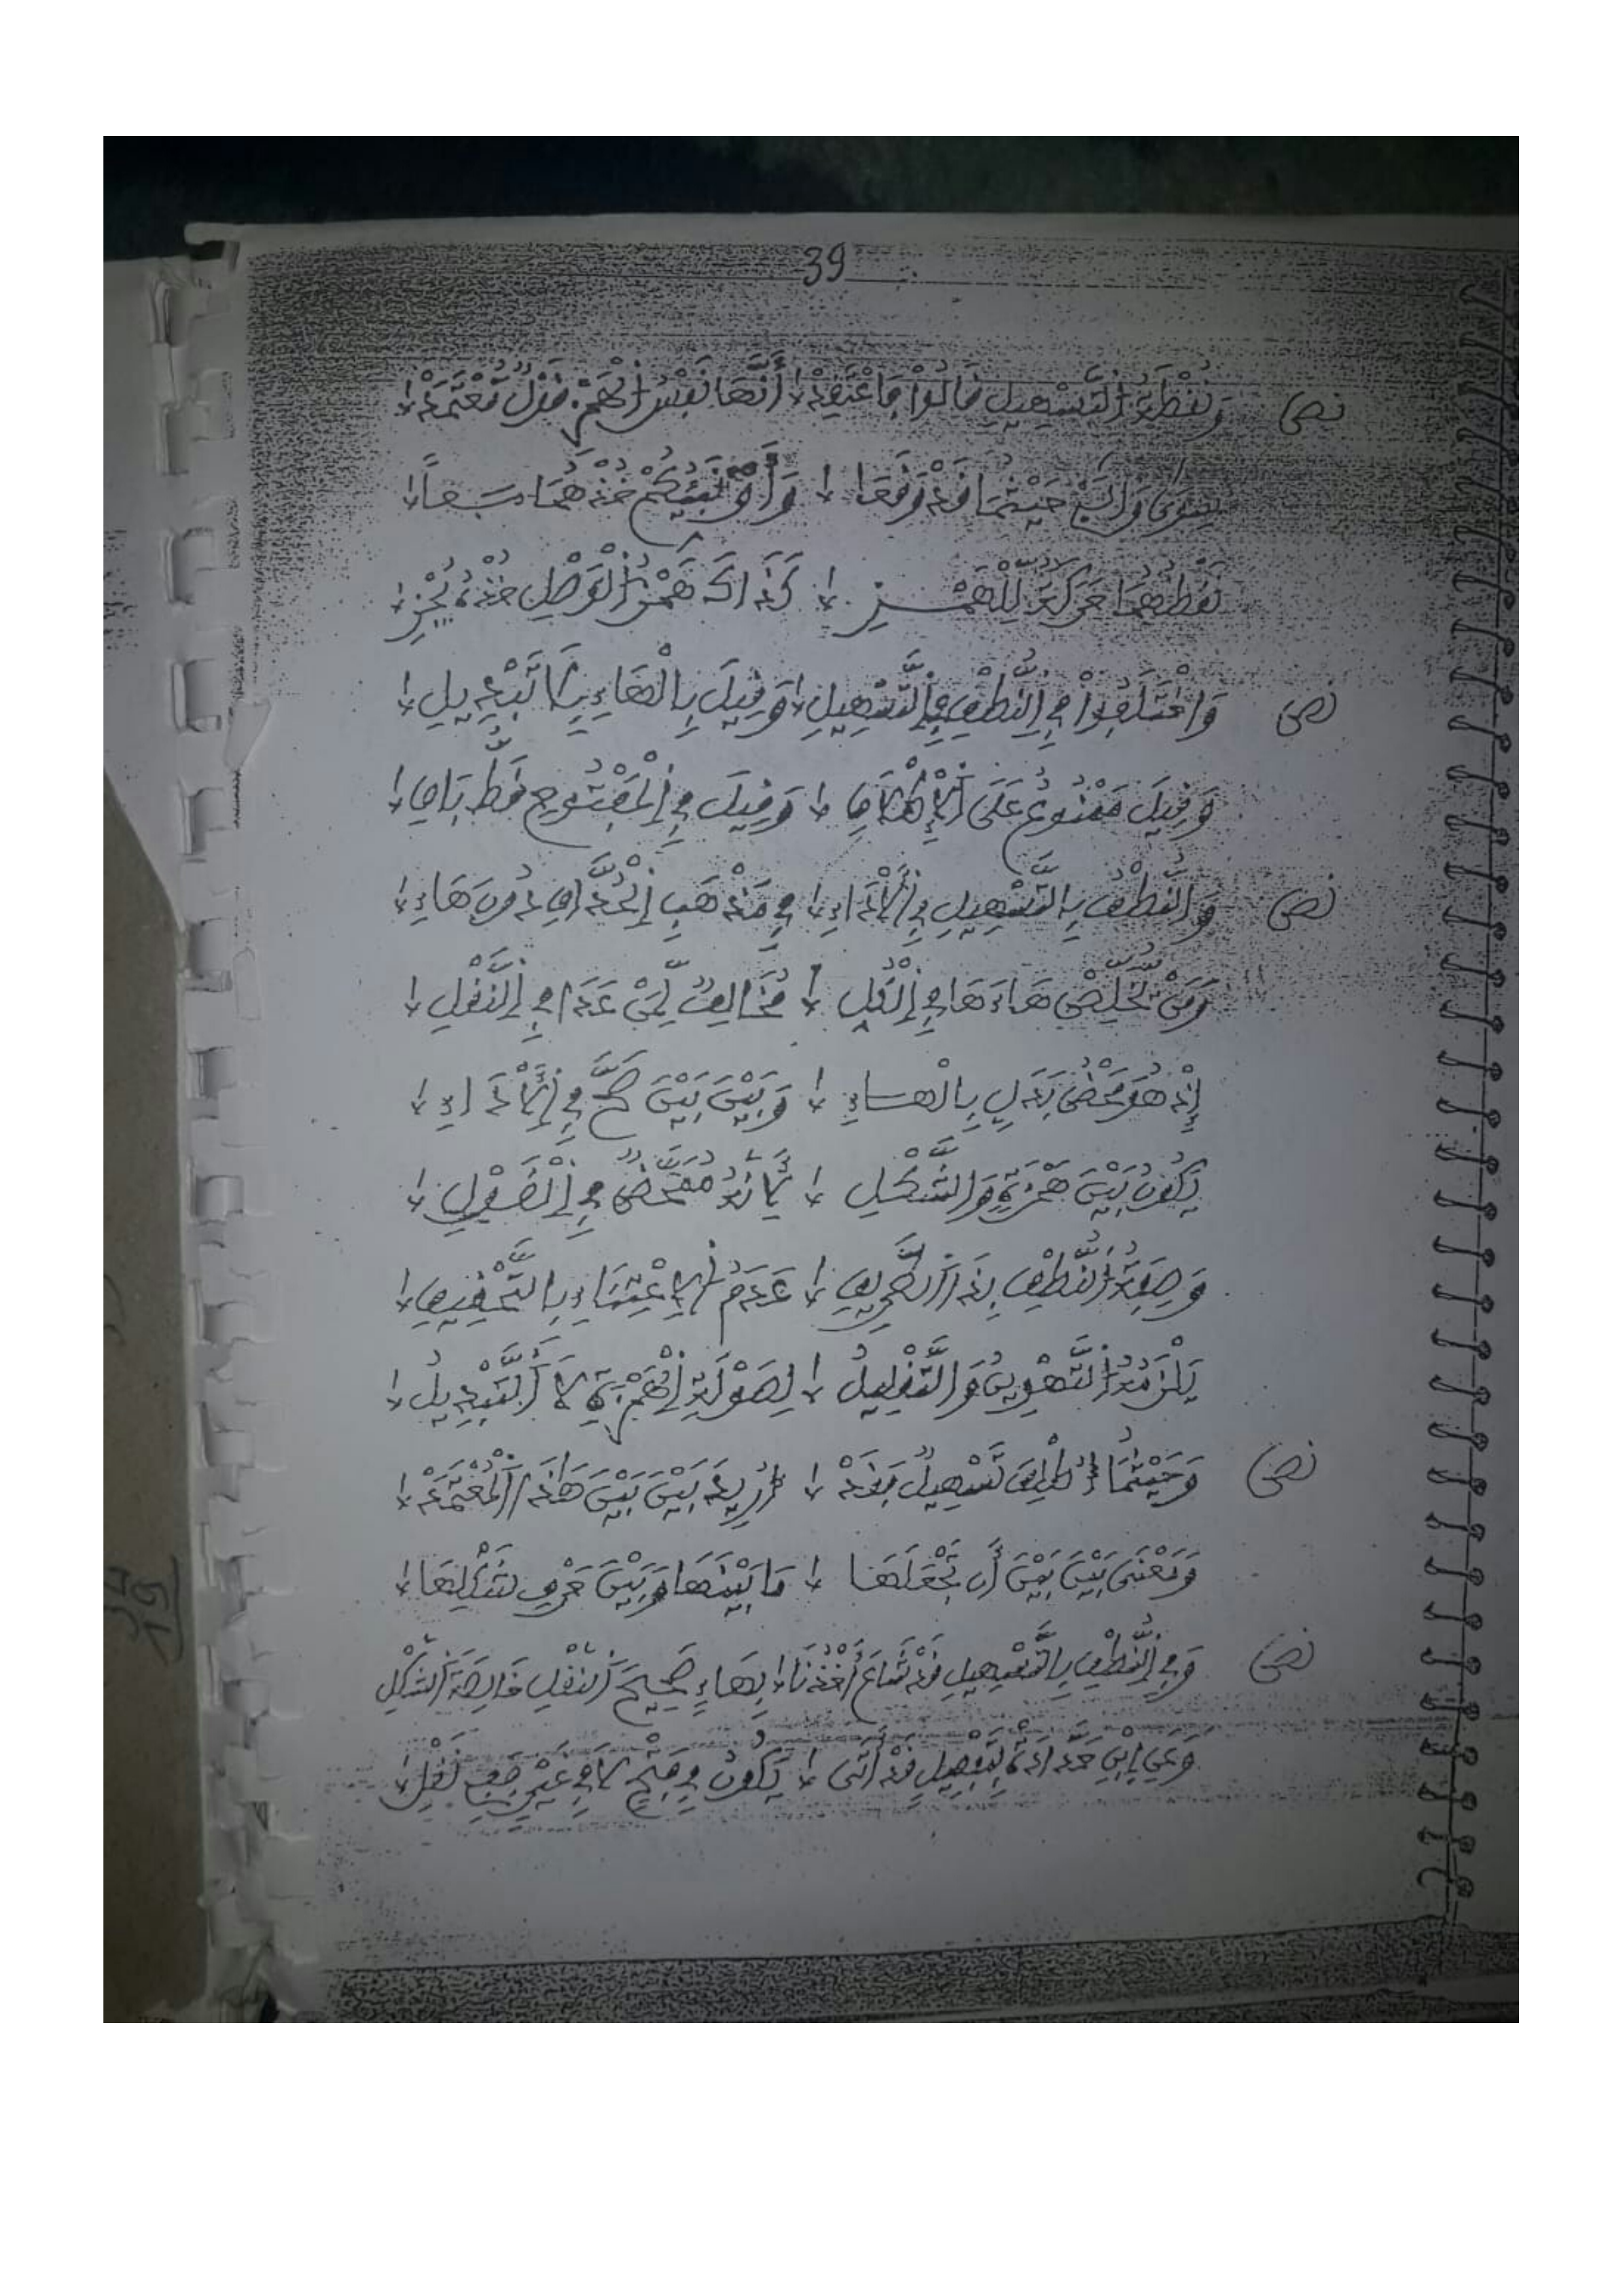 39
نص وَنُقْطَةُ التَّسْهِيلِ قَالُوا فَاعْتَقِدْ أَنَّهَا نَفْسُ الْهَمْزِ قَوْلٌ مُعْتَمَدْ
سِوَى وَالَّيْ حَيْثُمَا قَدْ وَقَعَا وَأَؤُنَبِّئُكُمْ خُذْهُمَا سَعاً
نَقْطُهُمَا حَرَكَةٌ لِلْهَمْزِ كَذَاكَ هَمْزُ الْوَصْلِ خُذْهُ
نص وَاخْتَلَفُوا فِي النُّطْقِ فِي التَّسْهِيلِ وَقِيلَ بِالْهَاءِ بِلَا تَبْدِيلِ
وَقِيلَ مَمْنُوعٌ عَلَى الْإِطْلَاقِ وَقِيلَ فِي الْمَفْتُوحِ قَطْ بَاقِ
نص وَالنُّطْقُ بِالتَّسْهِيلِ فِي الْأَدَاءِ فِي مَذْهَبِ الْحُذَّاقِ دُونَ هَاءِ
وَمَنْ يُخَلِّصْ هَاءَهَا فِي الْقُلِ مُخَالِفٌ لِمَنْ عَدَا فِي النَّقْلِ
إِذْ هُوَ مَحْضُ بَدَلٍ بِالْهَاءِ وَبَيْنَ بَيْنَ صَحَّ فِي الْأَدَاءِ
يَكُونُ بَيْنَ هَمْزَةٍ وَالشَّكْلِ
وَصِفَةُ النُّطْقِ بِذَا الطَّرِيقِ عَدَمُ الِاعْتِنَاءِ بِالتَّحْقِيقِ
يَلْزَمُهُ التَّهْوِينُ وَالتَّقْلِيلُ لِصَوْلَةِ الْهَمْزَةِ لَا التَّبْدِيلُ
نص وَحَيْثُمَا أُطْلِقَ تَسْهِيلٌ فَقَدْ أُرِيدَ بَيْنَ بَيْنَ هَذَا الْمُعْتَمَدْ
وَمَعْنَى بَيْنَ بَيْنَ أَنْ تَجْعَلَهَا مَا بَيْنَهَا وَبَيْنَ حَرْفِ شَكْلِهَا
نص وَفِي النُّطْقِ بِالتَّسْهِيلِ قَدْ شَاعَ أَخْذُنَا بِهَاءٍ صَحِيحَ النَّقْلِ خَالِصَةَ الشَّكْلِ
وَعَنِ ابْنِ حَدَّادَةَ تَفْصِيلٌ قَدْ أَتَى يَكُونُ فِي فَتْحٍ لَا فِي غَيْرِ